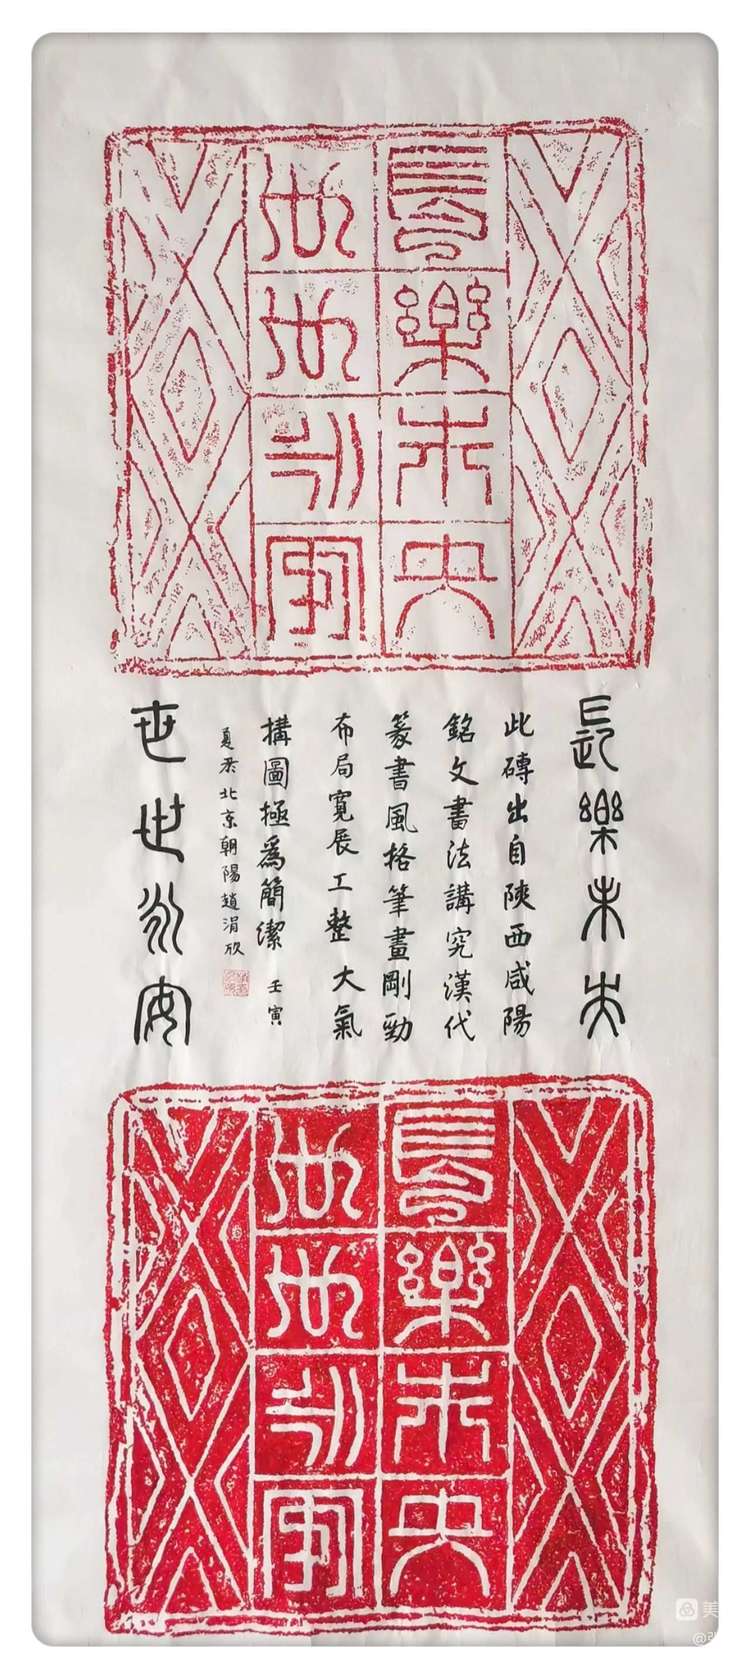 長樂未央
世世永安
長樂未央
此磚出自陝西咸陽
銘文書法講究漢代
篆書風格筆畫剛勁
布局寬展工整大氣
構圖極爲簡潔 壬寅
夏於北京朝陽趙涓欣
世世永安
長樂未央
世世永安
美